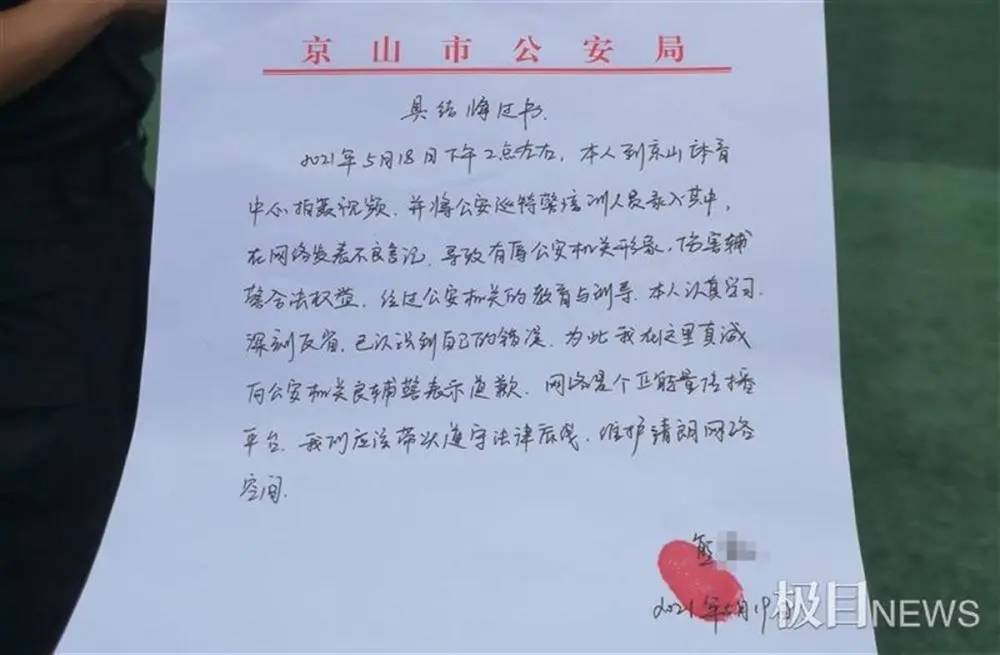 京山市公安局
具结悔过书.
2021年5月18日下午2点左右，本人到京山体育
中心拍摄视频，并将公安巡特警培训人员录入其中，
在网络发表不良言论，导致有辱公安机关形象，伤害辅
警合法权益，经过公安机关的教育与训导，本人认真学习，
深刻反省，已认识到自己的错误，为此我在这里真诚
向公安机关及辅警表示道歉，网络是个正能量传播
平台，我们应该带头遵守法律底线，维护清朗网络
空间.
熊
2021年5月19日
极目NEWS